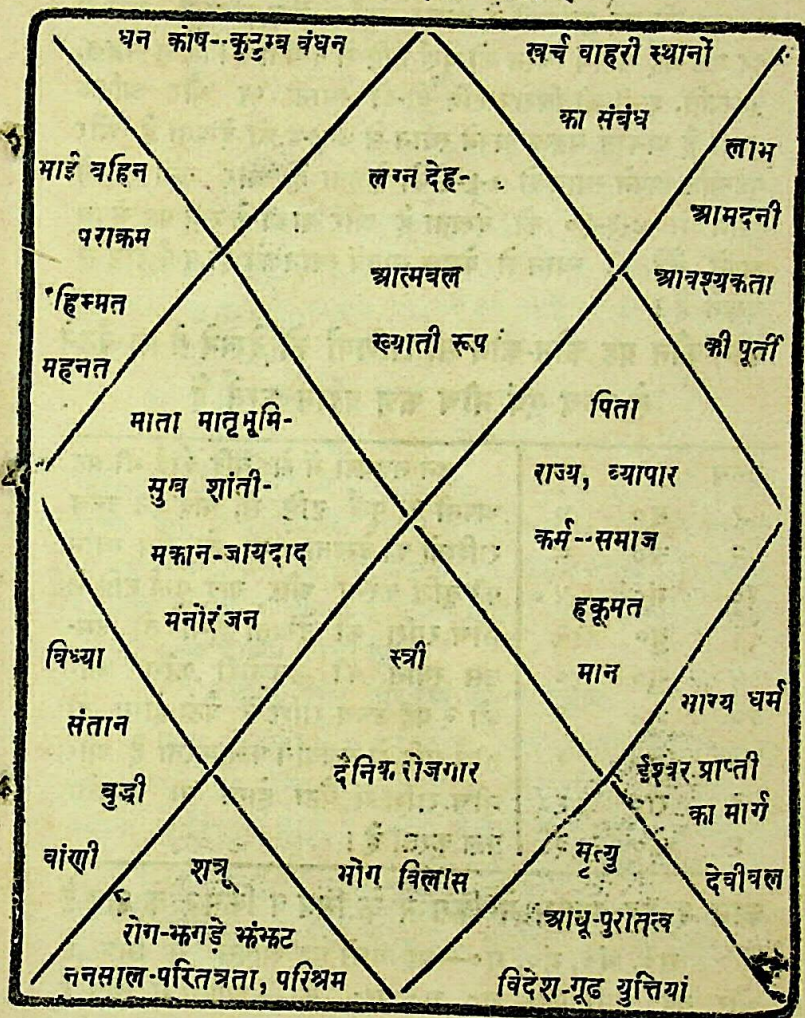 धन कोष--कुटुम्ब वंधन
खर्च वाहरी स्थानों
का संबंध
भाई वहिन
पराक्रम
हिम्मत
महनत
लग्न देह-
आत्मवल
ख्याती रूप
लाभ
आमदनी
आवश्यकता
की पूर्ती
माता मातृभूमि-
सुख शांती-
मकान-जायदाद
मनोरंजन
पिता
राज्य, व्यापार
कर्म--समाज
हकूमत
मान
विध्या
संतान
वुद्धी
वांणी
स्त्री
दैनिक रोजगार
भोग विलास
भाग्य धर्म
ईश्वर प्राप्ती
का मार्ग
देवीवल
शत्रू
रोग-झगड़े झंझट
ननसाल-परितत्रता, परिश्रम
मृत्यु
आयू-पुरातत्व
विदेश-गूढ युत्तियां